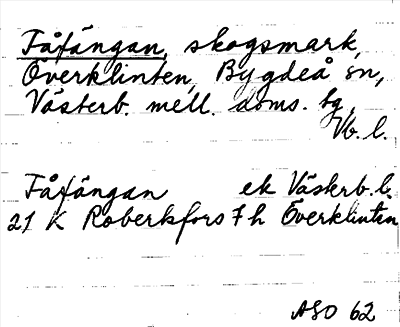 Fåfängan, skogsmark,
Överklinten, Bygdeå sn,
Västerb. mell. doms. tg,
Vb. l.
Fåfängan ek Västerb. l.
21 K Robertsfors 7 h Överklinten
ASO 62